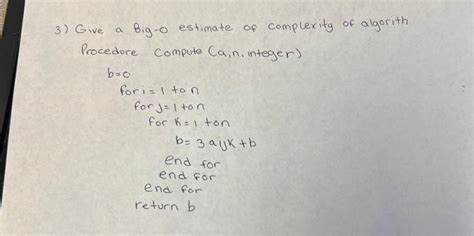 3) Give a Big-O estimate of complexity of algorith
Procedure Compute (a,n,integer)
b=0
for i = 1 to n
for j = 1 to n
for k = 1 to n
b = 3 aijk + b
end for
end for
end for
return b